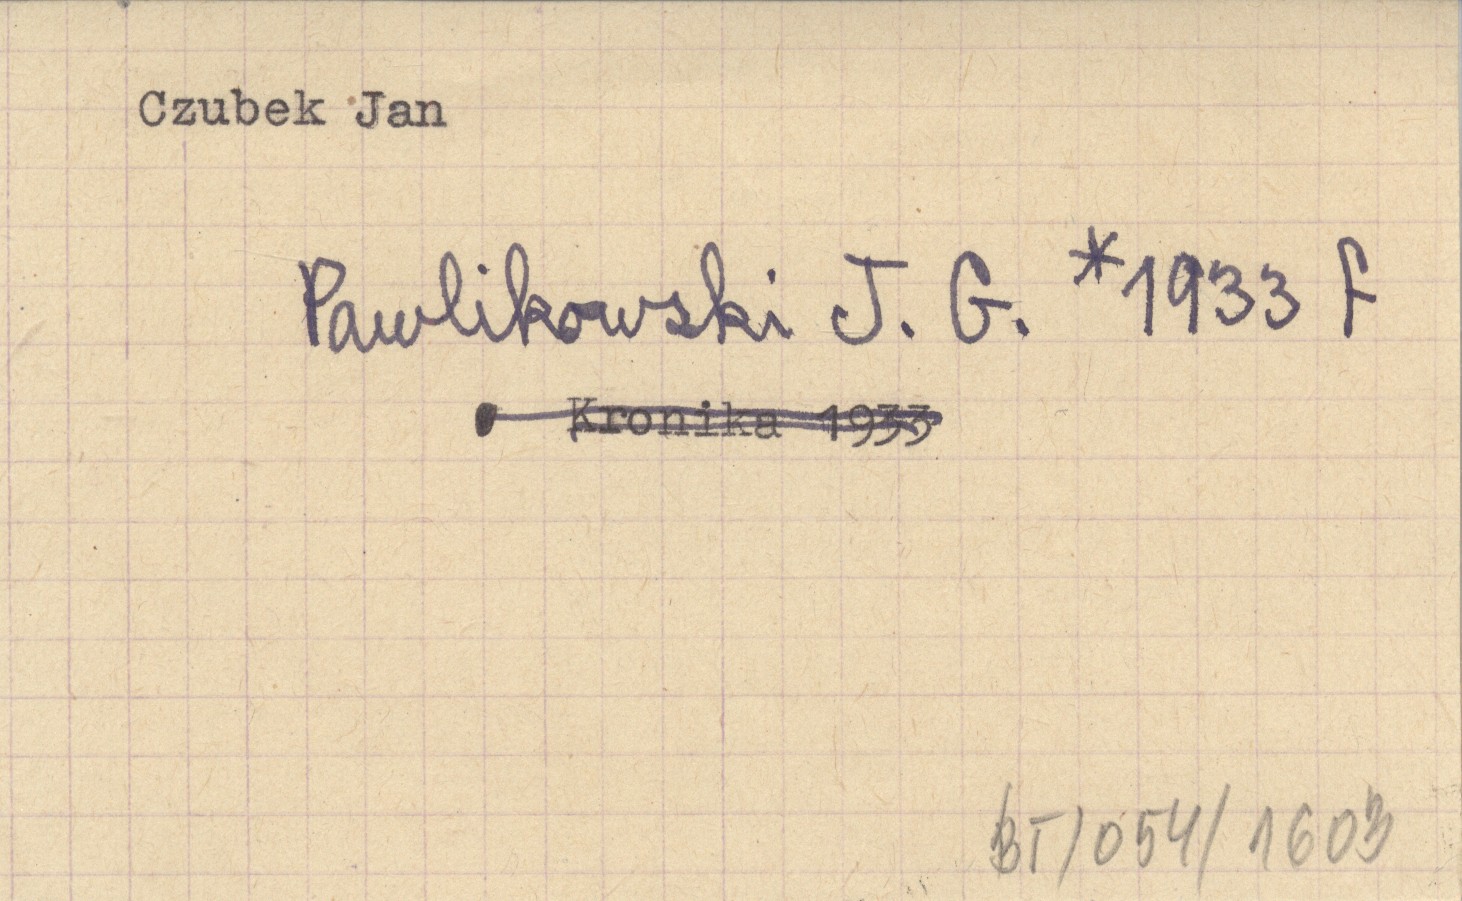 Czubek Jan
Pawlikowski J. G. *1933 f
Kronika 1933
BT/054/1603